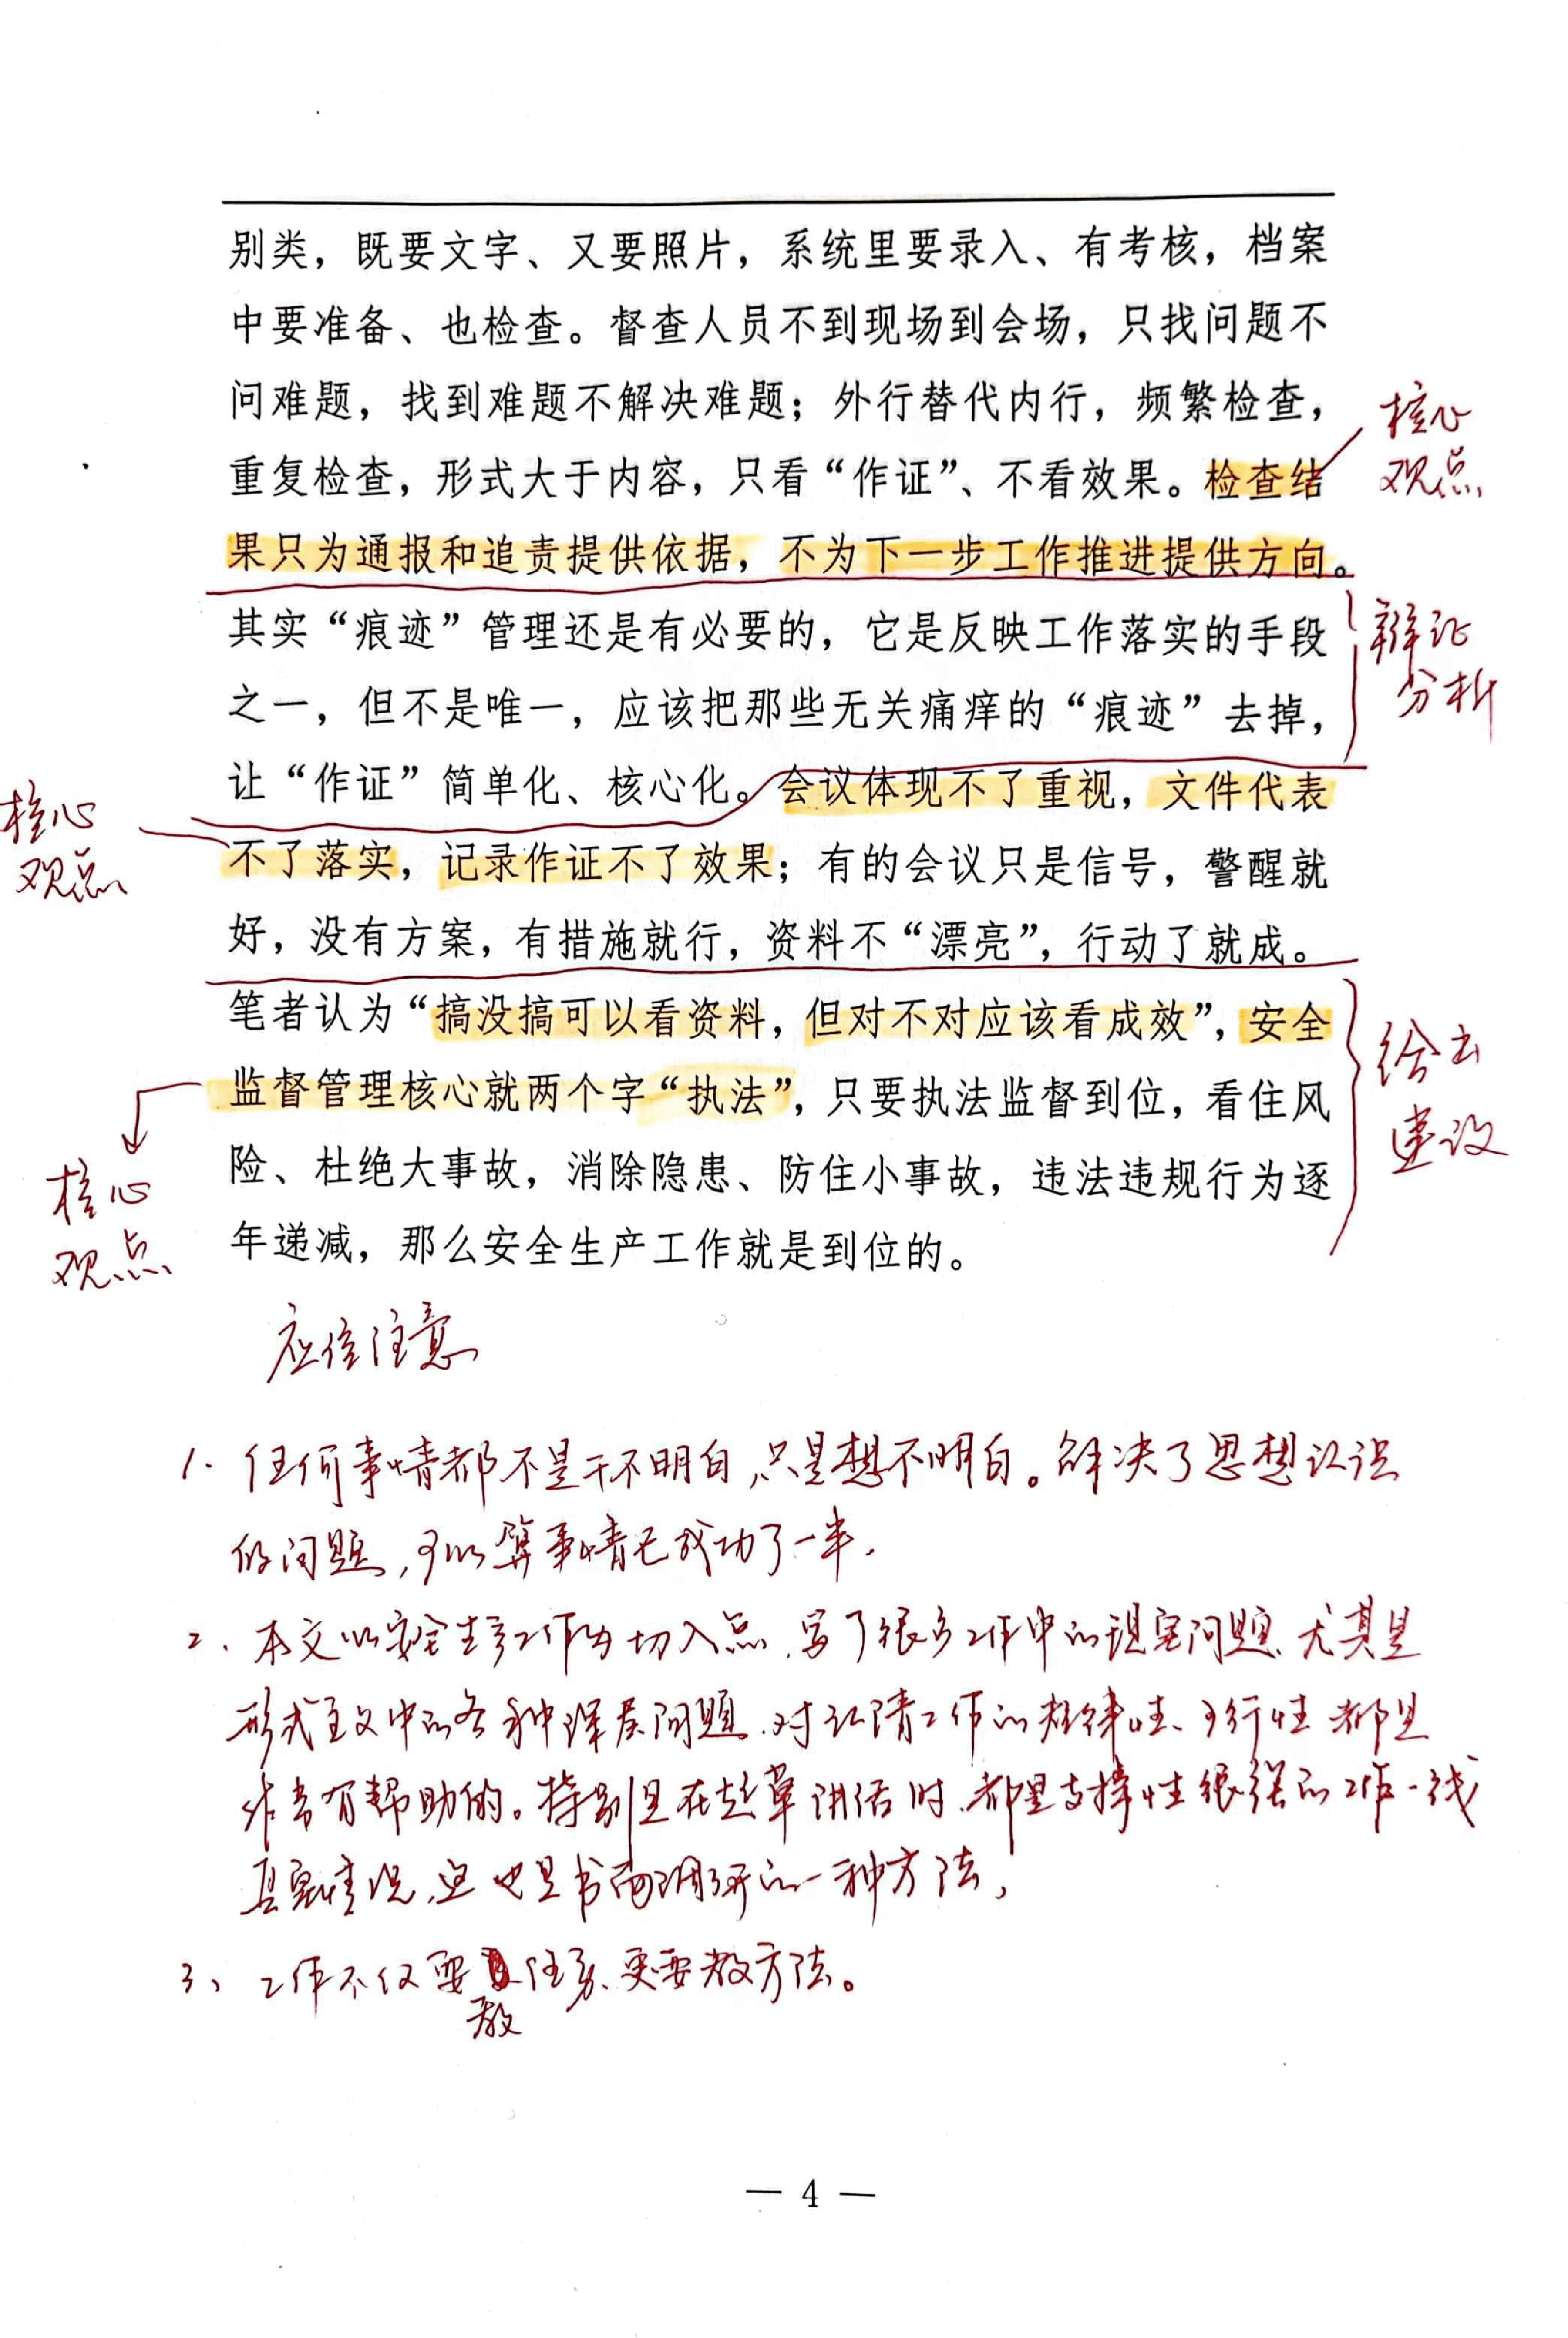 别类，既要文字、又要照片，系统里要录入、有考核，档案
中要准备、也检查。督查人员不到现场到会场，只找问题不
问难题，找到难题不解决难题；外行替代内行，频繁检查，
核心
观点
重复检查，形式大于内容，只看“作证”、不看效果。检查结
果只为通报和追责提供依据，不为下一步工作推进提供方向。
其实“痕迹”管理还是有必要的，它是反映工作落实的手段
辩证
分析
之一，但不是唯一，应该把那些无关痛痒的“痕迹”去掉，
让“作证”简单化、核心化。会议体现不了重视，文件代表
核心
观点
不了落实，记录作证不了效果；有的会议只是信号，警醒就
好，没有方案，有措施就行，资料不“漂亮”，行动了就成。
笔者认为“搞没搞可以看资料，但对不对应该看成效”，安全
给出
建议
监督管理核心就两个字“执法”，只要执法监督到位，看住风
险、杜绝大事故，消除隐患、防住小事故，违法违规行为逐
核心
观点
年递减，那么安全生产工作就是到位的。
应该注意
1. 任何事情都不是干不明白，只是想不明白。解决了思想认识
的问题，可以算事情已成功了一半.
2、本文以安全生产工作为切入点，写了很多工作中的现实问题、尤其是
形式主义中的各种深层问题，对认清工作的规律性、可行性都是
非常有帮助的。特别是在起草讲话时，都是支撑性很强的工作一线
真实情况，这也是书面调研的一种方法，
3、工作不仅要教任务、更要教方法。
— 4 —